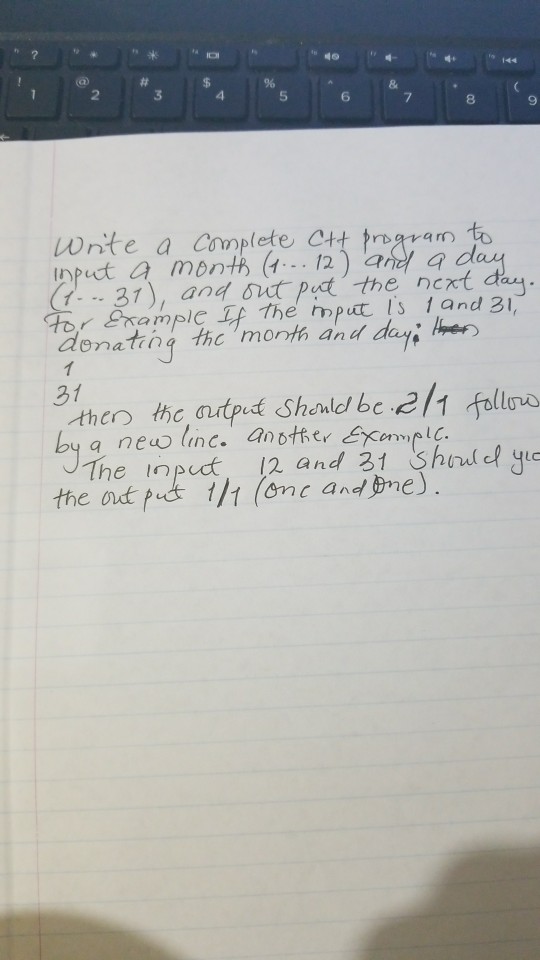 ? 
! 1 @ 2 # 3 $ 4 % 5 ^ 6 & 7 * 8 ( 9
Write a Complete C++ program to
input a month (1... 12) and a day
(1... 31), and out put the next day.
For Example If the input is 1 and 31,
donating the month and day;
1
31
then the output should be 2/1 follow
by a new line. another Example.
The input 12 and 31 should yie
the out put 1/1 (one and one).